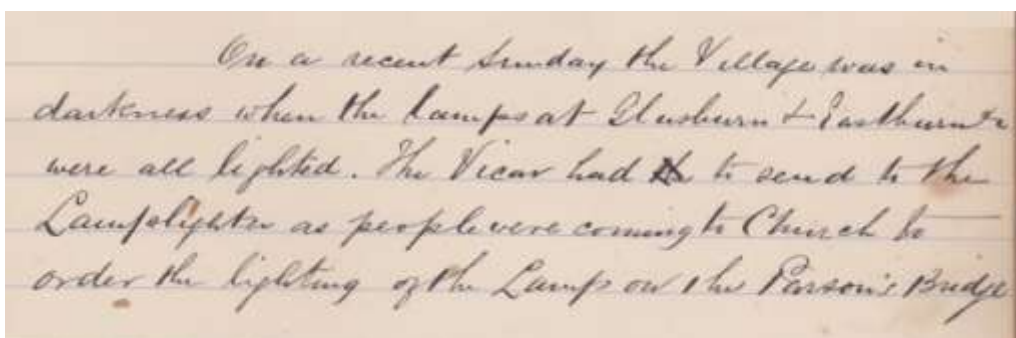 On a recent Sunday the Village was in
darkness when the lamps at Glusburn & Eastburn &c
were all lighted. The Vicar had to send to the
Lamplighter as people were coming to Church to
order the lighting of the Lamp on the Parson's Bridge